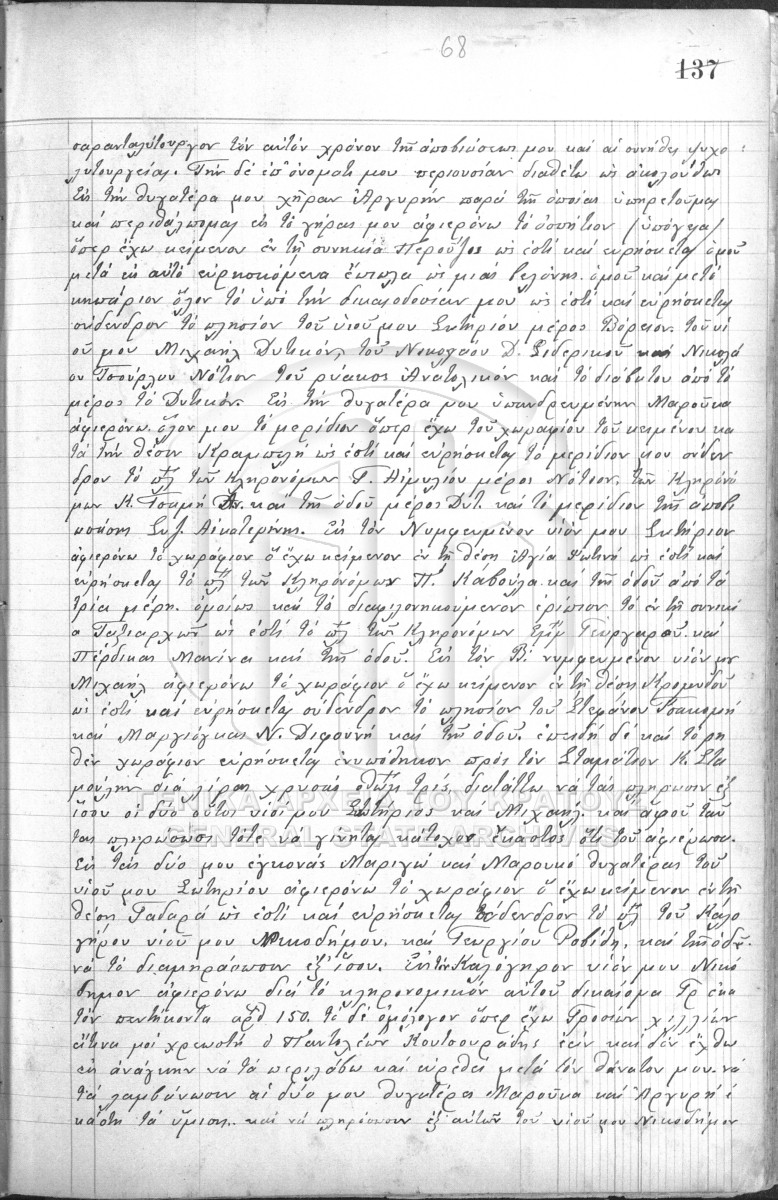 68
137
σαρανταλείτουργον τὸν αὐτὸν χρόνον τῆς ἀποβιώσεως μου καὶ αἱ συνήθεις ψυχο
λειτουργείας. Τὴν δὲ ἐπ' ὀνόματί μου περιουσίαν διαθέτω ὡς ἀκολούθως
Εἰς τὴν θυγατέρα μου χήραν Ἀργυρὴν παρὰ τῆς ὁποίας ὑπηρετοῦμαι
καὶ περιθάλπομαι εἰς τὸ γῆρας μου ἀφιερόνω τὸ ὁσπήτιον (ὑπόγεια)
ὅπερ ἔχω κείμενον ἐν τῇ συνοικίᾳ ὡς ἐστὶ καὶ εὑρήσκεται ὁμοῦ
μετὰ εἰς αὐτὸ εὑρησκόμενα ἔπιπλα ὡς μιας βελόνης. ὁμοῦ καὶ με τὸ
κηπάριον ὅλον τὸ ὑπὸ τὴν δικαιοδοσίαν μου ὡς ἐστὶ καὶ εὑρήσκεται
σύδενδρον τὸ πλησίον τοῦ υἱοῦ μου Σωτηρίου μέρος Βόρειον. τοῦ υἱ
οῦ μου Μιχαὴλ Δυτικὸν, τοῦ Νικολάου Δ. Σιδερικοῦ καὶ Νικολά
ου Τσούρλου Νότιον τοῦ ρύακος Ἀνατολικὸν καὶ τὸ διάβατον ἀπὸ τὸ
μέρος τὸ Δυτικόν. Εἰς τὴν θυγατέρα μου ὑπανδρευμένην Μαροῦκα
ἀφιερόνω ὅλον μου τὸ μερίδιον ὅπερ ἔχω τοῦ χωραφίου τοῦ κειμένου κα
τὰ τὴν θέσιν Κραμπελὴ ὡς ἐστὶ καὶ εὑρήσκεται τὸ μερίδιον μου σύδεν
δρον τὸ πλ. τῶν Κληρονόμων Γ. Αἰμιλίου μέρος Νότιον, τῶν Κληρονό
μων Κ. Τσαμῆ Ἀν. καὶ τῆς ὁδοῦ μέρος Δυτ. καὶ τὸ μερίδιον τῆς ἀποβι
ωσάσης Συζ. Αἰκατερίνης. Εἰς τὸν Νυμφευμένον υἱόν μου Σωτήριον
ἀφιερόνω τὸ χωράφιον ὃ ἔχω κείμενον ἐν τῇ θέσῃ Ἁγία Φωτηνὴ ὡς ἐστὶ καὶ
εὑρήσκεται τὸ πλ. τῶν Κληρονόμων Π. Κάβουλα καὶ τῆς ὁδοῦ ἀπὸ τὰ
τρία μέρη. ὁμοίως καὶ τὸ διαφιλονηκούμενον ἐρίπιον τὸ ἐν τῇ συνοικί
ᾳ Ταξιαρχῶν ὡς ἐστὶ τὸ πλ. τῶν Κληρονόμων Γεωργαροῦ. καὶ
Πέρδικας Μανίνα καὶ τῆς ὁδοῦ. Εἰς τὸν Β. νυμφευμένον υἱὸν μου
Μιχαὴλ ἀφιερόνω τὸ χωράφιον ὃ ἔχω κείμενον ἐν τῇ θέσῃ Κρομυδοῦ
ὡς ἐστὶ καὶ εὑρήσκεται σύδενδρον τὸ πλησίον τοῦ Στεφάνου Τσακομῆ
καὶ Μαργιόγκας Ν. Διφουνῆ καὶ τῆς ὁδοῦ. ἐπειδὴ δὲ καὶ τὸ ρη
θὲν χωράφιον εὑρήσκεται ἐνυπόθηκον πρὸς τὸν Σταμάτιον Κ. Στα
μούλην διὰ λίρας χρυσᾶς ὀθ. τρὶς, διατάττω νὰ τὰς πληρώσουν ἐξ
ἴσου οἱ δύο οὗτοι υἱοί μου Σωτήριος καὶ Μιχαὴλ. καὶ ἀφοῦ ταύ
τας πληρώσωσι τότε νὰ γίνηται κάτοχος ἕκαστος ὅτι τοῦ ἀφιέρωσα.
Εἰς τὰς δύο μου ἐγκονὰς Μαριγὼ καὶ Μαρουκὸ θυγατέρας τοῦ
υἱοῦ μου Σωτηρίου ἀφιερόνω τὸ χωράφιον ὃ ἔχω κείμενον ἐν τῇ
θέσῃ Γαδαρᾶ ὡς ἐστὶ καὶ εὑρήσκεται σύδενδρον τὸ πλ. τοῦ Καλο
γήρου υἱοῦ μου Νικοδήμου, καὶ Γεωργίου Ροβίδη, καὶ τῆς ὁδοῦ.
νὰ τὸ διαμηράσωσιν ἐξ ἴσου. Εἰς τὸν Καλόγηρον υἱὸν μου Νικό
δημον ἀφιερόνω διὰ τὸ κληρονομικὸν αὐτοῦ δικαίομα Γρ ἑκα
τὸν πεντήκοντα ἀρθ 150. τὸ δὲ ὁμόλογον ὅπερ ἔχω Γροσίων χιλλίων
ἅτινα μοὶ χρεωστῇ ὁ Παντολέων Κουτσουράδης ἐὰν καὶ δὲν ἔχθω
εἰς ἀνάγκην νὰ τὰ περιλάβω καὶ εὑρεθεῖ μετὰ τὸν θάνατον μου. νὰ
τὰ λαμβάνωσιν αἱ δύο μου θυγατέρες Μαροῦκα καὶ Ἀργυρὴ ἑ
κάστη τὰ ἥμιση. καὶ νὰ πληρόσουν ἐξ αὐτῶν τοῦ υἱοῦ μου Νικοδήμου
ΓΕΝΙΚΑ ΑΡΧΕΙΑ ΤΟΥ ΚΡΑΤΟΥΣ
GENERAL STATE ARCHIVES